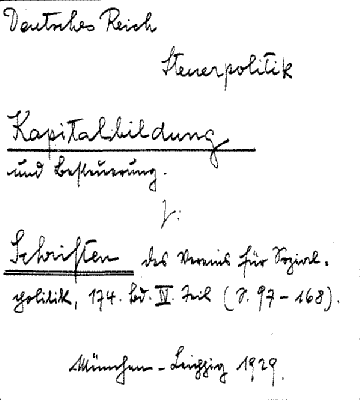 Deutsches Reich
Steuerpolitik
Kapitalbildung
und Besteuerung.
J:
Schriften des Vereins für Sozial-
politik, 174. Bd. IV. Teil (S. 97-168).
München-Leipzig 1929.